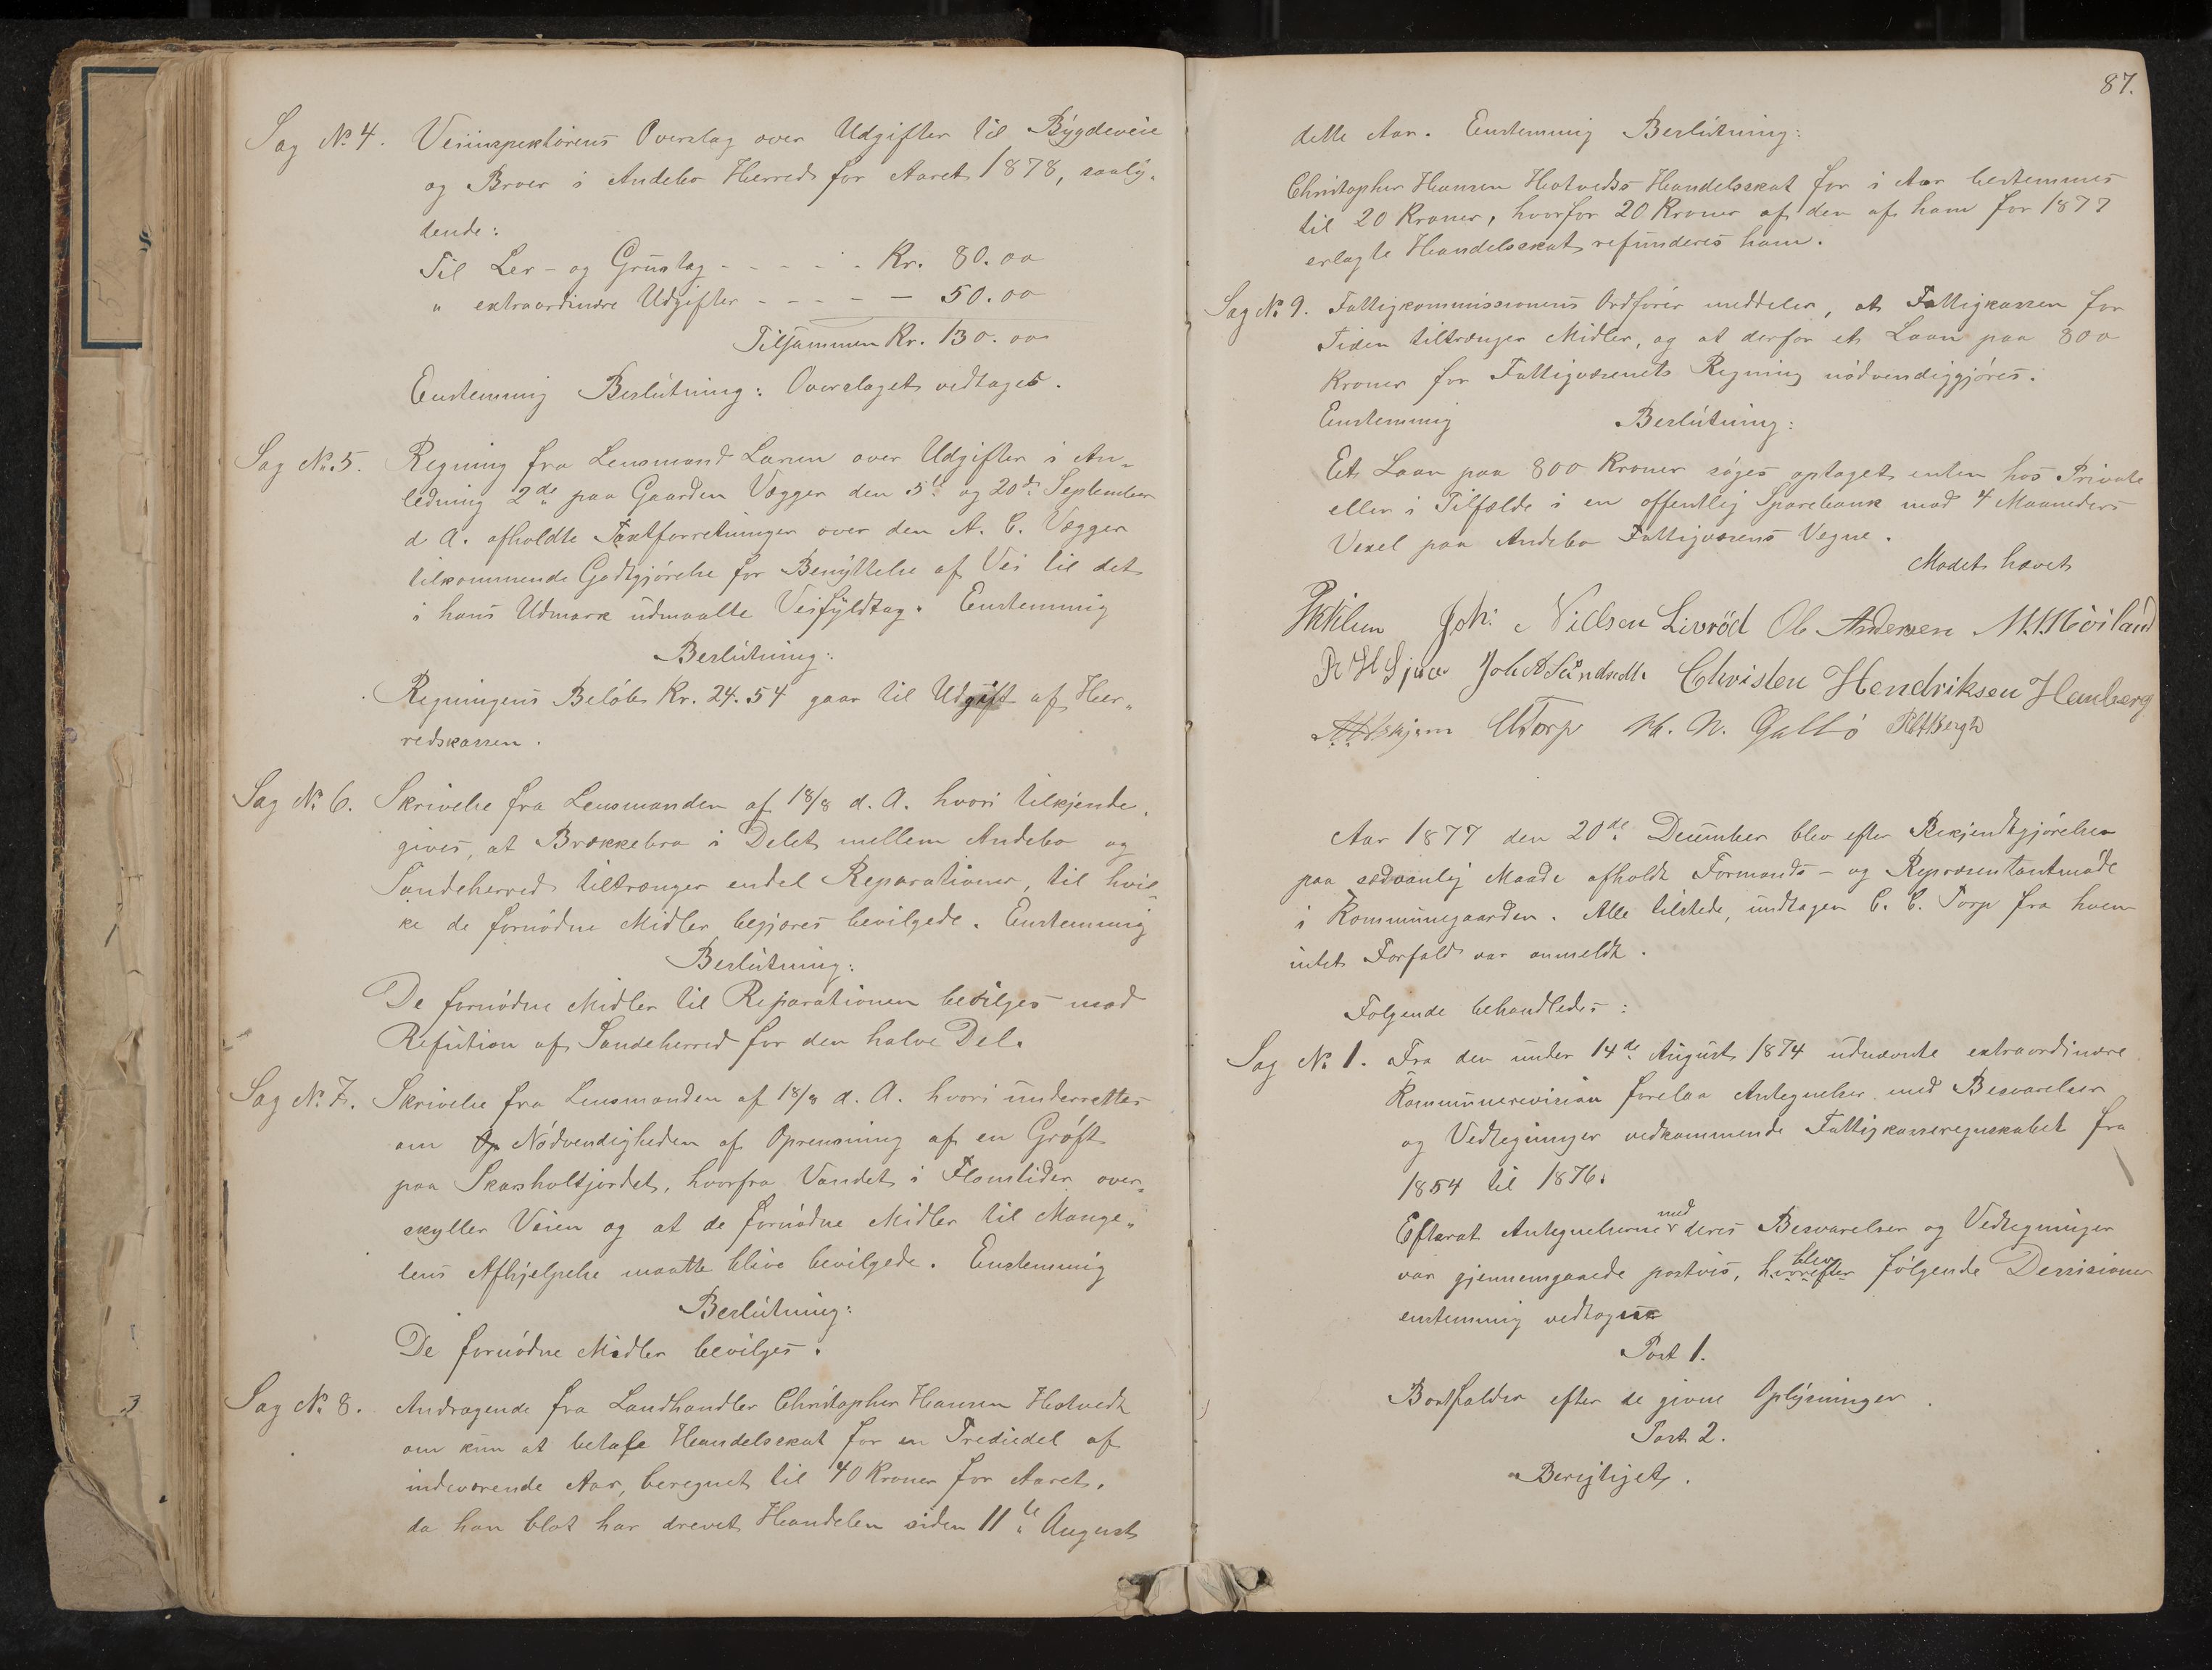 Sag No 4. Veiinspektørens Overslag over Udgifter til Bygdeveie
og Broer i Andebo Herred for Aaret 1878, saaly-
dende:
Til Ler- og Grustag - - - - - Kr. 80.00
" extraordinære Udgifter - - - - - 50.00
Tilsammen Kr. 130.00
Enstemmig Beslutning: Overslaget vedtages.
Sag No. 5. Regning fra Lensmand Larsen over Udgifter i An-
ledning 2de paa Gaarden Vegger den 5te og 20de September
d. A. afholdte Taxtforretninger over den A. C. Vegger
tilkommende Godtgjørelse for Benyttelse af Vei til det
i hans Udmark udmaalte Veifyldtag. Enstemmig
Beslutning:
Regningens Beløb Kr. 24.54 gaar til Udgift af Her-
redskassen.
Sag No 6. Skrivelse fra Lensmanden af 18/8 d. A. hvori tilkjende-
gives, at Brækkebro i Delet mellem Andebo og
Sandeherred tiltrænger endel Reparationer, til hvil-
ke de fornødne Midler begjæres bevilgede. Enstemmig
Beslutning:
De fornødne Midler til Reparationen bevilges mod
Refution af Sandeherred for den halve Del.
Sag No. 7. Skrivelse fra Lensmanden af 18/8 d. A. hvori underrettes
om Op Nødvendigheden af Oprensning af en Grøft
paa Skarsholtjordet, hvorfra Vandet i Flomtider over-
skyller Veien og at de fornødne Midler til Mange-
lens Afhjelpelse maatte blive bevilgede. Enstemmig
Beslutning:
De fornødne Midler bevilges.
Sag No. 8. Andragende fra Landhandler Christopher Hansen Hotvedt
om kun at betale Handelsskat for en Trediedel af
indeværende Aar, beregnet til 40 Kroner for Aaret,
da han blot har drevet Handelen siden 11te August
87.
dette Aar. Enstemmig Beslutning:
Christopher Hansen Hotvedts Handelsskat for i Aar bestemmes
til 20 Kroner, hvorfor 20 Kroner af den af ham for 1877
erlagte Handelsskat refunderes ham.
Sag No. 9. Fattigkommissionens Ordfører meddeler, at Fattigkassen for
Tiden tiltrænger Midler, og at derfor et Laan paa 800
Kroner for Fattigvæsenets Regning nødvendiggjøres.
Enstemmig Beslutning:
Et Laan paa 800 Kroner søges optaget enten hos Private
eller i Tilfælde i en offentlig Sparebank mod 4 Maaneders
Vexel paa Andebo Fattigvæsens Vegne.
Mødet hævet
Joh. Nielsen Livrød Ole Andersen M. Møiland
Christen Hendriksen Hamberg
CTorp H. N. Gallø
Aar 1877 den 20de December blev efter Bekjendtgjørelse
paa sædvanlig Maade afholdt Formands- og Repræsentantmøde
i Kommunegaarden. Alle tilstede, undtagen C. C. Torp fra hvem
intet Forfald var anmeldt.
Følgende behandledes:
Sag No 1. Fra den under 14de August 1874 udnævnte extraordinære
Kommunerevision forelaa Antegnelser med Besvarelser
og Vedtegninger vedkommende Fattigkasseregnskabet fra
1854 til 1876.
Efterat Antegnelserne med deres Besvarelser og Vedtegninger
var gjennemgaaede postvis, hvorefter blev følgende Decisioner
enstemmig vedtagne
Post 1.
Bortfalder efter de givne Oplysninger.
Post 2.
Berigtiget.